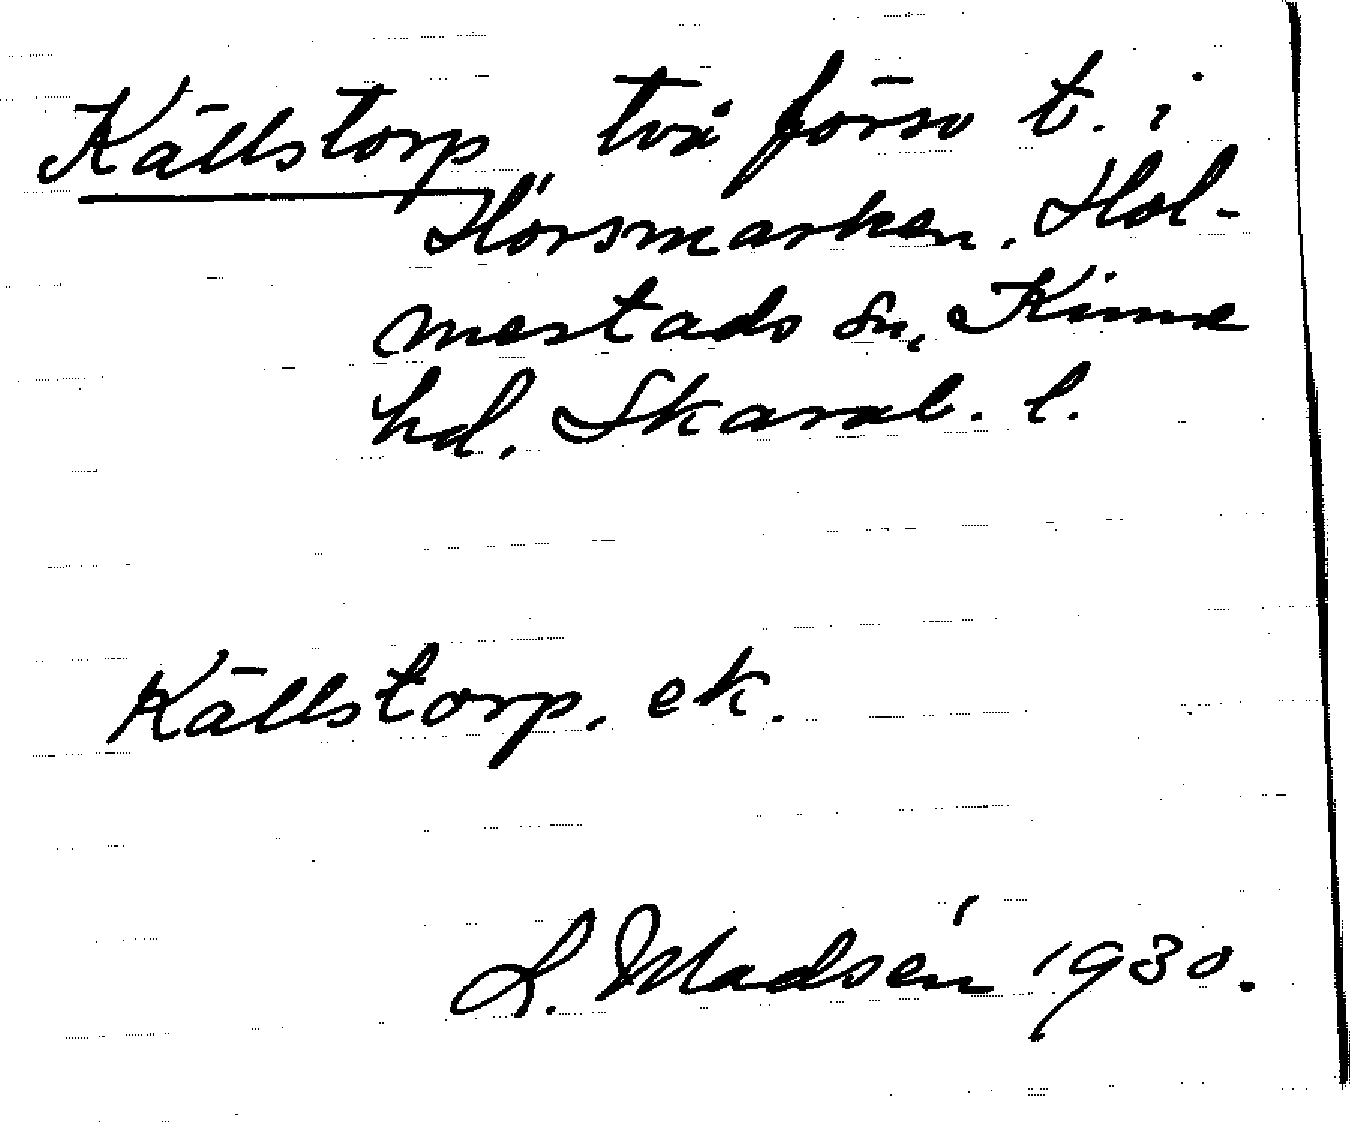 Källstorp, två försv t. i
Hörsmarken. Hol-
mestads sn, Kinne
hd. Skarab. l.
Källstorp. ek.
L. Madsén 1930.